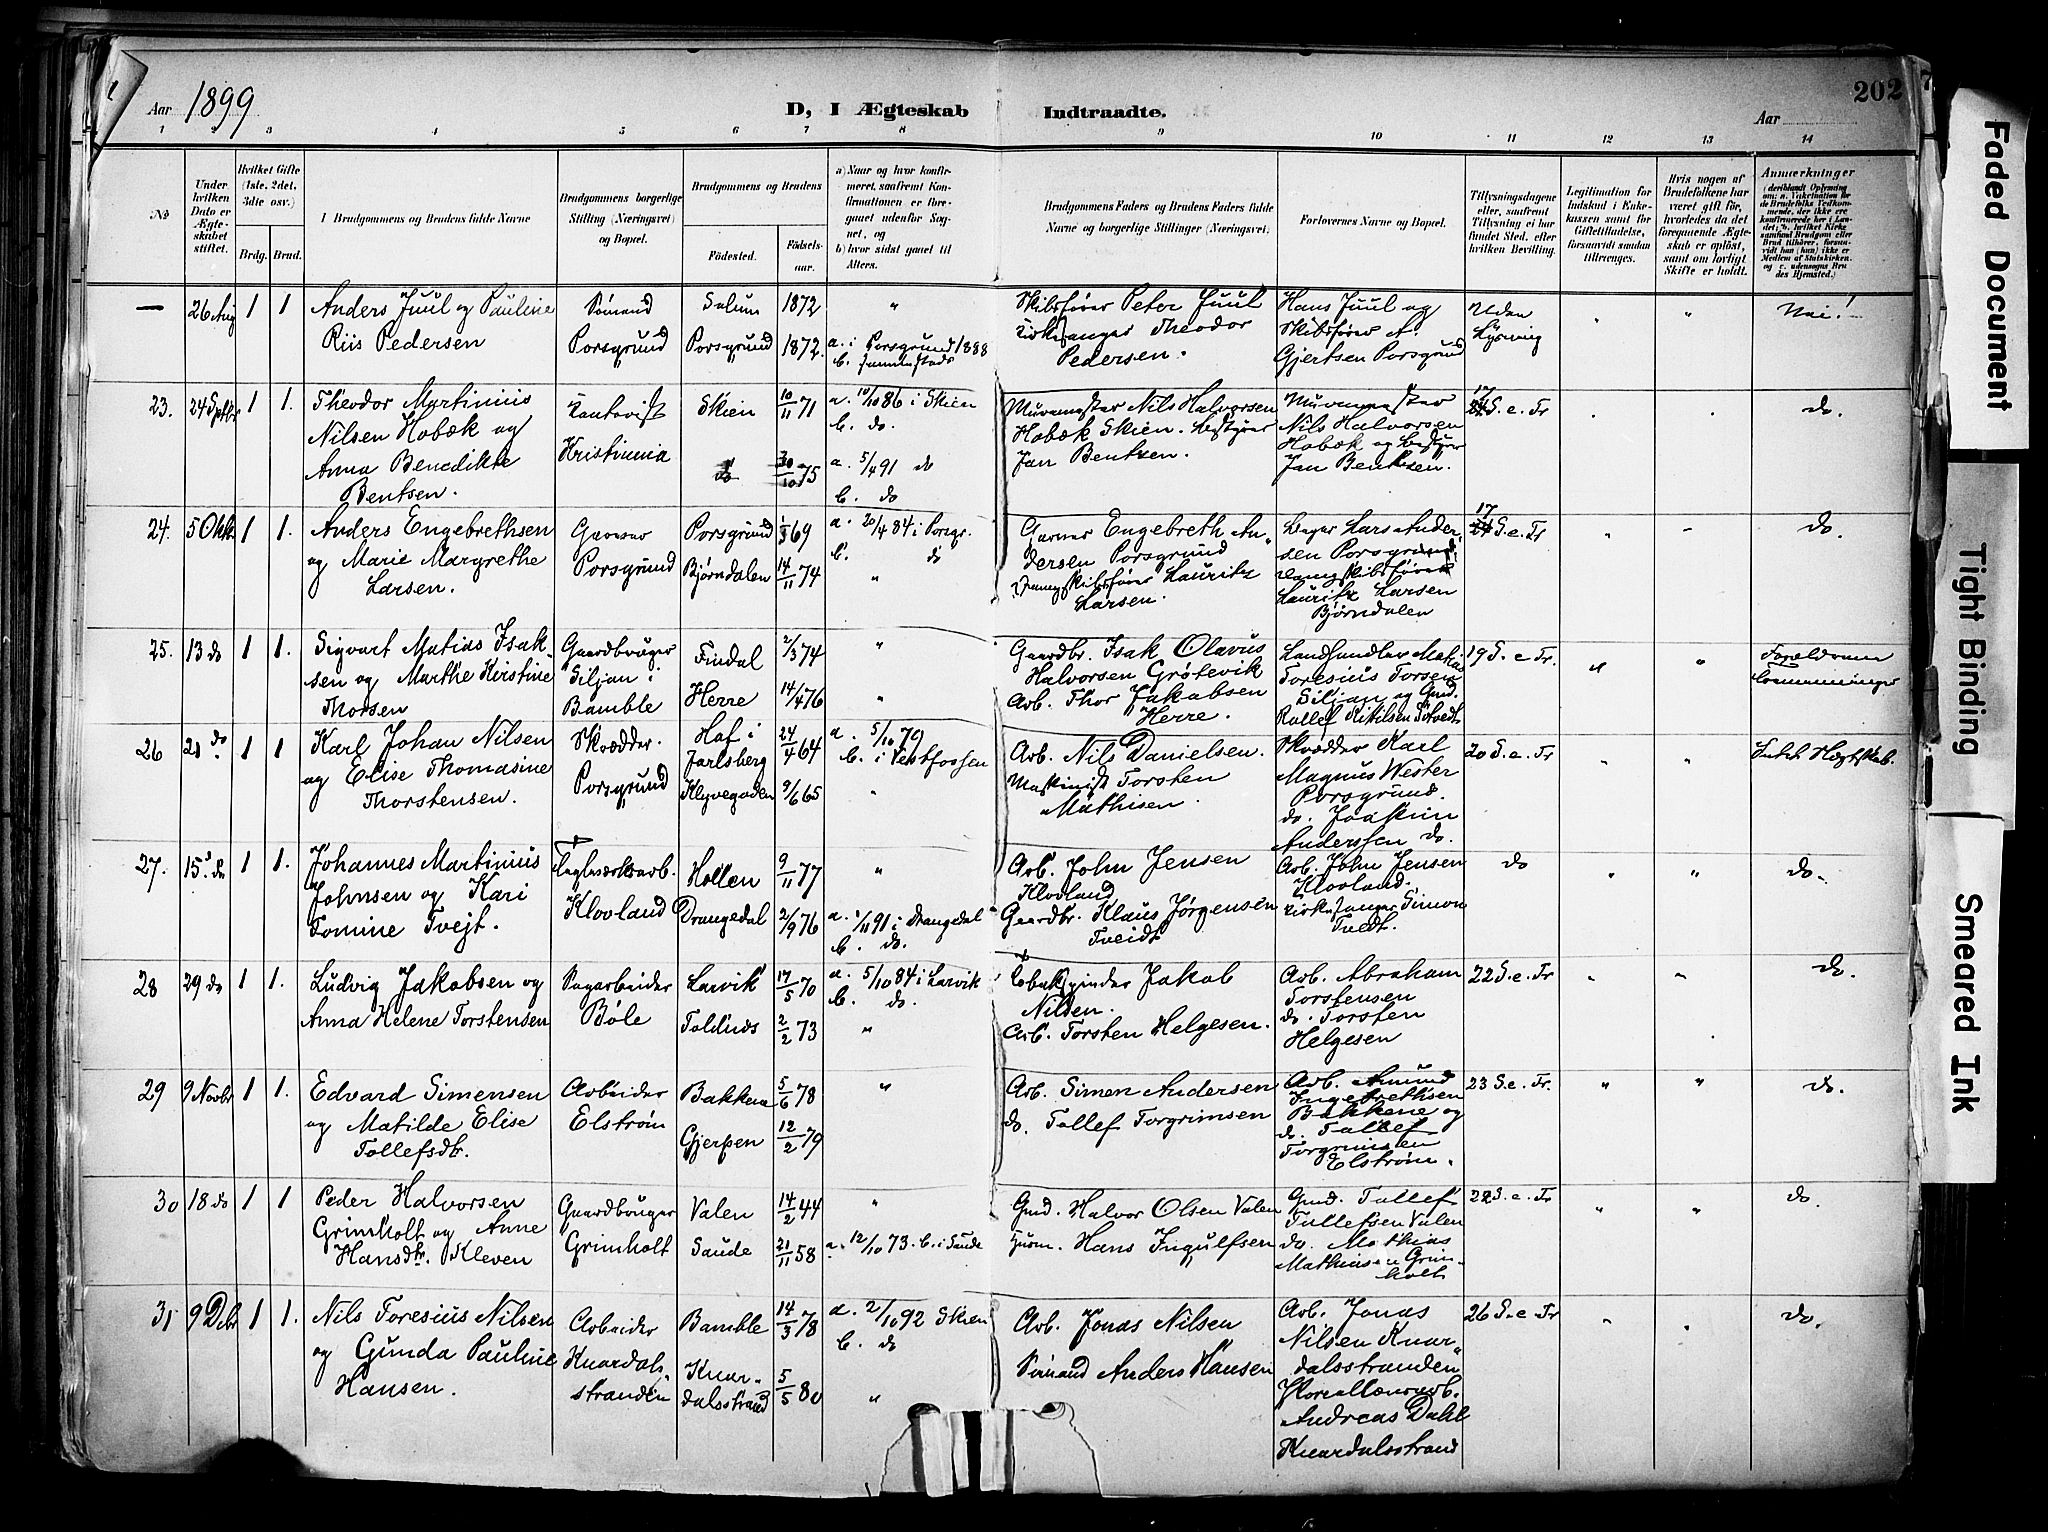 Aar 1899
D, I Ægteskab Indtraadte.
202
Aar
1 2 3 4 5 6 7 8 9 10 11 12 13 14
No
Under hvilken Dato er Ægteskabet stiftet.
Hvilket Gifte (1ste, 2det, 3die osv.)
Brdg. Brud.
Brudgommens og Brudens fulde Navne
Brudgommens borgerlige Stilling (Næringsvei) og Bopæl.
Brudgommens og Brudens
Fødested.
Fødselsaar.
a) Naar og hvor konfirmeret, saafremt Konfirmationen er foregaaet udenfor Sognet, og
b) hvor sidst gaaet til Alters.
Brudgommens Faders og Brudens Faders fulde Navne og borgerlige Stillinger (Næringsvei)
Forlovernes Navne og Bopæl.
Tillysningsdagene eller, saafremt Tillysning ei har fundet Sted, efter hvilken Bevilling.
Legitimation for Indskud i Enkekassen samt for Giftetilladelse, forsaavidt saadan tiltrænges.
Hvis nogen af Brudefolkene har været gift før, hvorledes da det foregaaende Ægteskab er opløst, samt om lovligt Skifte er holdt.
Anmærkninger
— 26 Aug 1 1
Anders Juul og Pauline
Riis Pedersen
Sømand
Porsgrund
Solum 1872 "
Porsgrund 1872. a. i Porsgrund 1888
b.
Skibsfører Peter Juul
Kirkesanger Theodor
Pedersen.
Hans Juul og
Skibsfører A.
Gjertsen Porsgrund
Uden
Lysning
" " Nei!
23. 24 Septbr 1 1.
Theodor Martinius
Nilsen Hobæk og
Anna Benedikte
Bentsen.
Kristiania
Skien 10/11 71 a. 10/10 86 i Skien
b. do.
do 30/10 75 a. 5/4 91 do
b. do
Murermester Nils Halvorsen
Hobæk Skien. Bestyrer
Jan Bentsen.
Murermester
Nils Halvorsen
Hobæk og Bestyrer
Jan Bentsen.
17 S. e. Tr
do.
24. 5 Okt. 1 1.
Anders Engebrethsen
og Marie Margrethe
Larsen.
Garver
Porsgrund
Porsgrund 1/3 69 a. 20/4 84 i Porsgr.
b. do
Bjørndalen 14/11 74 "
Garver Engebreth An-
dersen Porsgrund
Dampskibsfører Lauritz
Larsen.
Bager Lars Ander-
sen Porsgrund.
Dampskibsfører
Lauritz Larsen
Bjørndalen
17 S. e. Tr
" - do.
25. 13 do 1 1.
Sigvart Matias Isak-
sen og Marthe Kirstine
Thorsen
Gaardbruger
Siljan i
Bamble
Findal 2/3 74 "
Herre 14/4 76 "
Gaardbr. Isak Olavus
Halvorsen Grøtevik
Arb. Thor Jakobsen
Herre.
Landhandler Matias
Toresius Torsen
Siljan og Gmd.
Rollef Kittilsen Tvedt
19 S. e Tr.
" "
26 21 do 1 1
Karl Johan Nilsen
og Elise Thomasine
Thorstensen.
Skrædder.
Porsgrund
Hof i
Jarlsberg 24/4 64 a. 5/10 79
b. i Vestfossen
Klyvegaden 9/6 65 "
Arb. Nils Danielsen.
Maskinist Torsten
Mathisen.
Skrædder Karl
Magnus Wester
Porsgrund.
do. Joakim
Anderssen do.
20 S. e. Tr
" " Intet Hægtskab.
27. 15. do 1 1.
Johannes Martinius
Johnsen og Kari
Tomine Tvejt.
Teglværksarb.
Klovland
Hollen 9/11 77 "
Drangedal 2/9 76 a. 1/11 91 i Drangedal
b. do.
Arb. John Jensen
Klovland
Gaardbr. Klaus Jørgensen
Tveidt
Arb. John Jensen
Klovland.
Kirkesanger Simon
Tvedt.
do " " do.
28 29 do 1 1.
Ludvig Jakobsen og
Anna Helene Torstensen
Sagarbeider
Bøle
Larvik 17/5 70 a. 5/10 84 i Larvik
b. do.
Toldnes 2/2 73 "
Jakob
Nilsen.
Arb. Torsten Helgesen.
Arb. Abraham
Torstensen
do. Torsten
Helgesen
22 S. e. Tr " " do.
29 9 Novbr 1 1.
Edvard Simensen
og Matilde Elise
Tollefsdtr.
Arbeider
Elstrøm
Bakkene 5/6 78 "
Gjerpen 12/2 79
Arb. Simen Andersen
do. Tollef Torgrimsen
Arb. Amund
Ingebrethsen
Bakkene og
do. Tollef
Torgrimsen
Elstrøm.
23 S. e. Tr. " " do.
30 18 do 1 1
Peder Halvorsen
Grimholt og Anne
Hansdtr. Kleven
Gaardbruger
Grimholt
Valen 14/2 44 "
Saude 21/11 58 a. 12/10 73. b. i Saude
Gmd. Halvor Olsen Valen
Husm. Hans Ingulfsen
Gmd. Tollef
Tollefsen Valen
do. Mathias
Mathiasen Grim-
holt
22 S. e. Tr " " do.
31 9 Debr 1 1.
Nils Toresius Nilsen
og Gunda Pauline
Hansen.
Arbeider
Knardal-
stranden
Bamble 14/3 78 a. 2/10 92 Skien
b. do
Knar-
dalsstrand 5/5 80 "
Arb. Jonas Nilsen
Sømand Anders Hansen
Arb. Jonas
Nilsen Knar-
dalsstranden
Andreas Dahl
Knardalsstrand
26 S. e Tr " " do.
Faded Document
Tight Binding
Smeared Ink